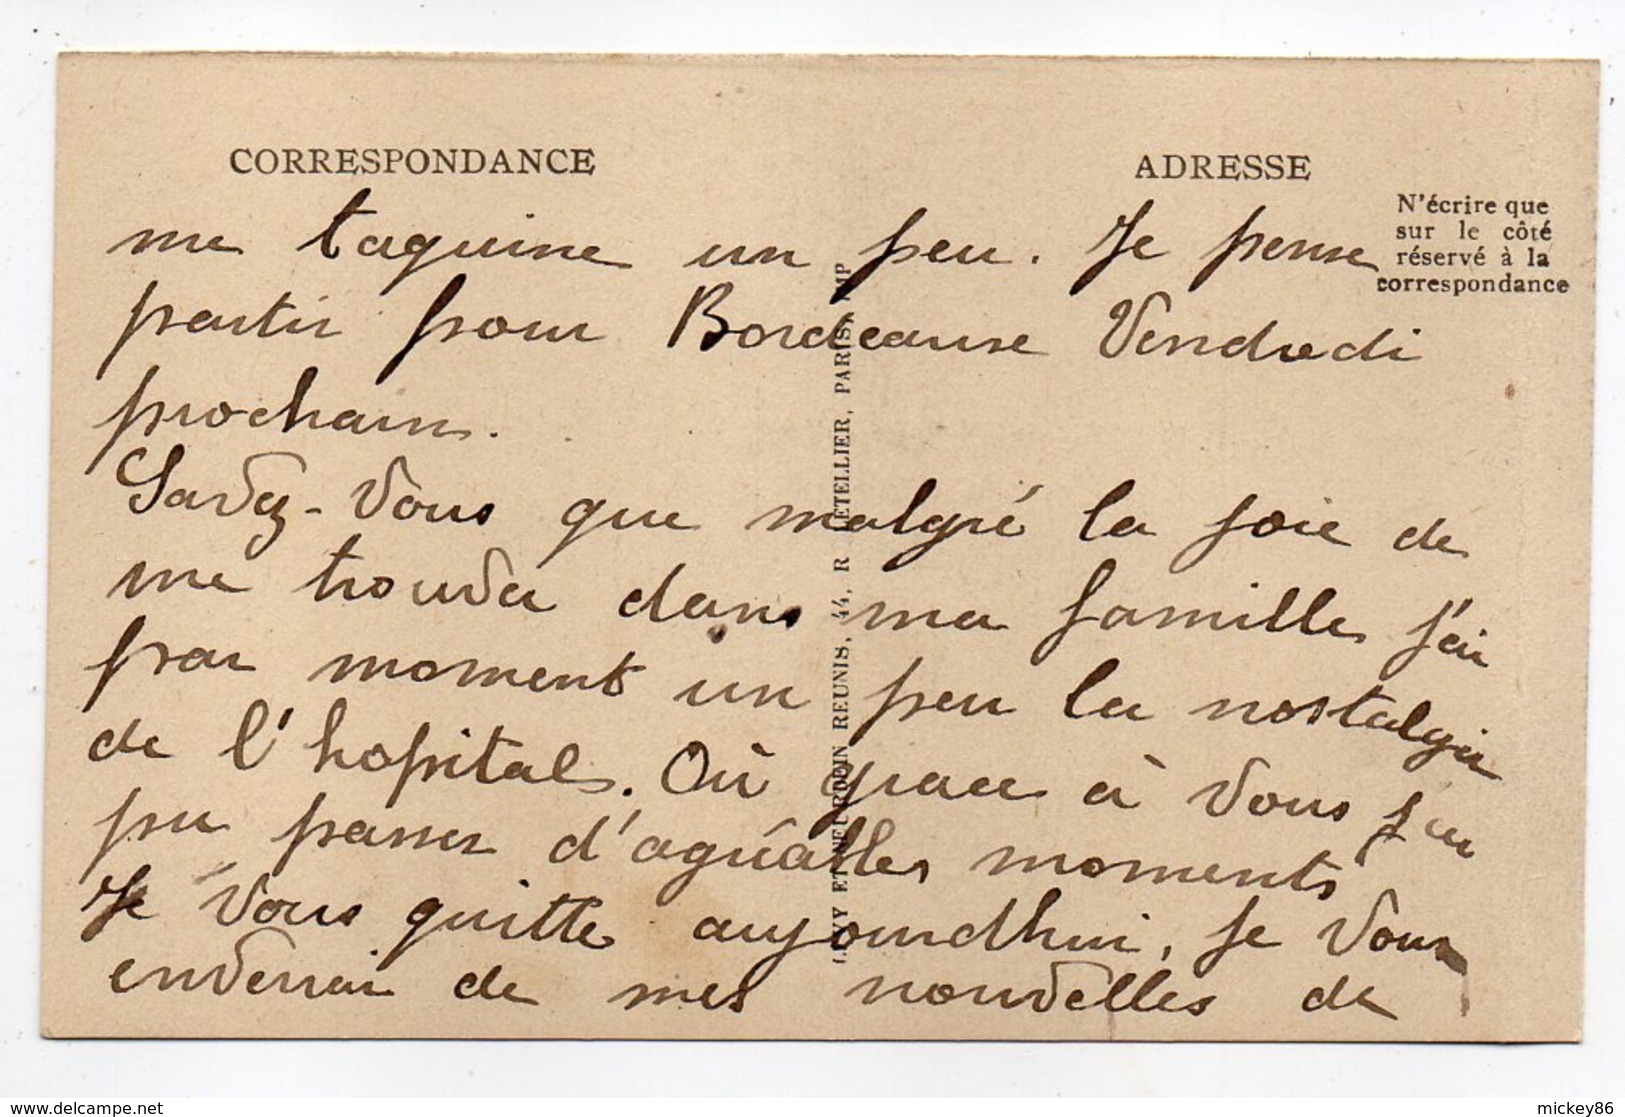 CORRESPONDANCE
ADRESSE
N'écrire que
sur le côté
réservé à la
correspondance
me taquine un peu. Je pense
partir pour Bordeaux Vendredi
prochain.
Savez-vous que malgré la joie de
me trouver dans ma famille j'ai
par moment un peu la nostalgie
de l'hopital. Où grace à vous j'ai
pu passer d'agréables moments
Je vous quitte aujourdhui, je vous
enverrai de mes nouvelles de
LEVY ET NEURDEIN REUNIS, 44, R LETELLIER, PARIS, IMP
delcampe.net
mickey86